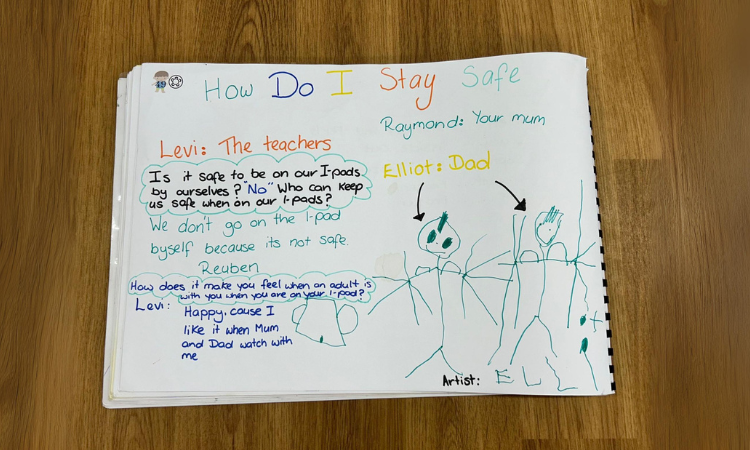 How Do I Stay Safe
Raymond: Your mum
Levi: The teachers
Elliot: Dad
Is it safe to be on our I-pads
by ourselves? "No" Who can keep
us safe when on our I-pads?
We don't go on the I-pad
byself because its not safe.
Reuben
How does it make you feel when an adult is
with you when you are on your I-pad?
Levi: Happy, cause I
like it when Mum
and Dad watch with
me
Artist: ELL